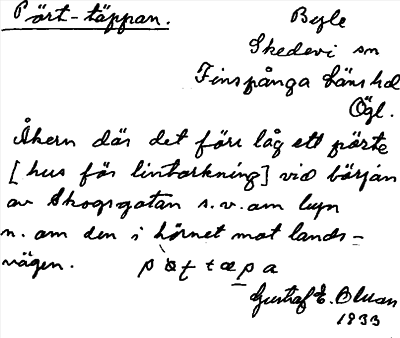 Pört-täppan.
Byle
Skedevi sn
Finspånga läns hd
Ögl.
Åkern där det förr låg ett pörte
[hus för lintorkning] vid början
av Skogsgatan s.v. om byn
n. om den i hörnet mot lands-
vägen.
Gustaf E. Olsson
1933